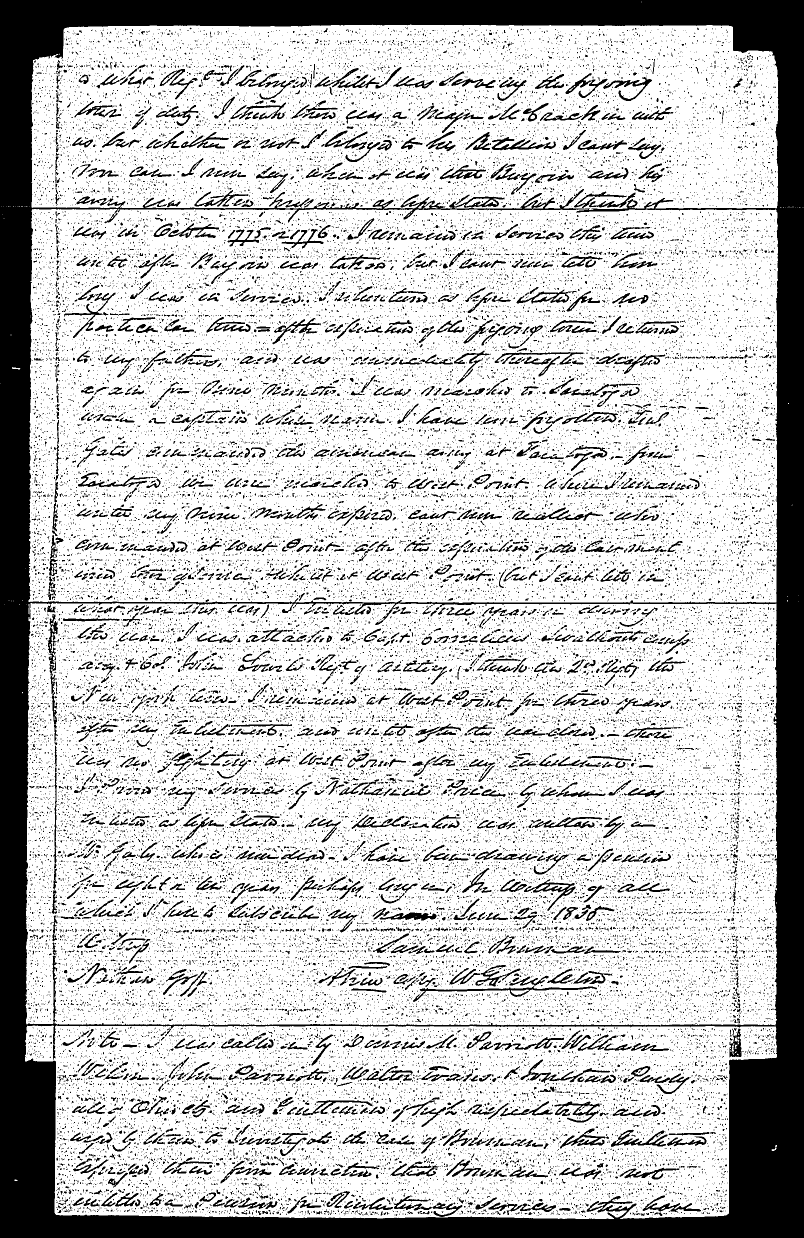 or what Regt. I belonged whilst I was serving the forgoing
tour of duty. I think there was a Major McCrackin with
us. but whether or not I belonged to his Betallion I cant say.
nor can I now say, when it was that Burgoin and his
army was taken prisoners as afore stated. but I think it
was in October 1775 or 1776. I remained in Service this time
until after Burgoin was taken; but I cant now tell how
long I was in Service. I volunteered as afore stated for no
particular time = after expiration of the forgoing tour I returned
to my fathers, and was immediately thereafter drafted
again for Nine Months. I was marched to Saratoga
under a captain whose name I have now forgotten. Genl
Gates commanded the american army at Saratoga - from
Saratoga we were marched to West Point where I remained
until my nine months expired. cant now recollect who
commanded at West Point - after the expiration of the last ment
ioned tour of service & whilst at West Point (but I cant tell in
what year this was) I Enlisted for three years or during
the war. I was attached to Capt. Cornelius Swarthouts comp
any & Col John Lamb's Regt of artilery (I think the 2d. Regt) the
New york line. I remained at West Point for three years
after my Enlistment, and until after the war closed. - there
was no fighting at West Point after my Enlistment. -
I Proved my services by Nathaniel Price by whom I was
Enlisted as afore stated. my Declaration was written by a
Mr. who is now dead. I have been drawing a pension
for eight or ten years perhaps longer, In Witness of all
which I hereto Subscribe my name. June 29 1835
Attest Samuel Bowman
Nathan Goff. A true copy W G Singleton -
Note - I was called on by Dennis M. Parriott William
Wilson John Parriott, Walter Evans, & Jonathan Purdy.
all of Ohio Cty. and Gentlemen of high respectability and
urged by them to Investigate the case of Bowman, these Gentlemen
expressed their firm conviction that Bowman was not
entitled to a Pension for Revolutionary Services - they have